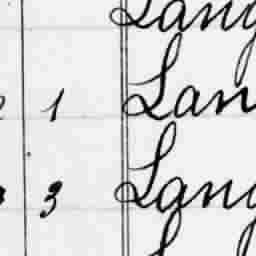 Lang
1 Lan
3 Lang